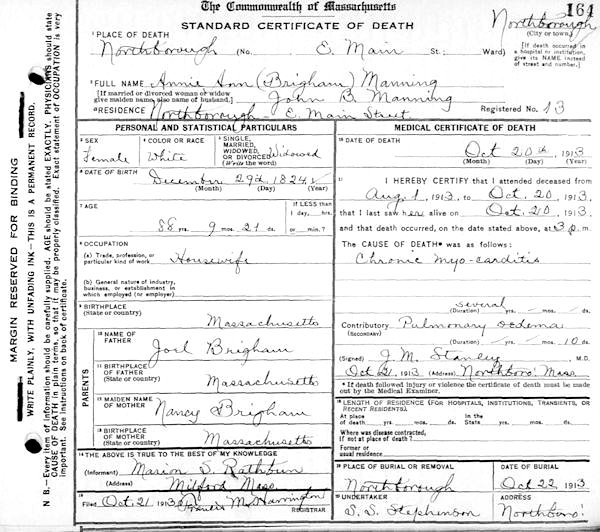 The Commonwealth of Massachusetts
164
STANDARD CERTIFICATE OF DEATH
Northborough
(City or town)
1 PLACE OF DEATH
Northborough (No. E. Main St.: Ward)
[If death occurred in a hospital or institution, give its NAME instead of street and number.]
2 FULL NAME Annie Ann (Brigham) Manning
[If married or divorced woman or widow give maiden name, also name of husband.] John B. Manning
RESIDENCE Northborough - E. Main Street Registered No. 13
PERSONAL AND STATISTICAL PARTICULARS
3 SEX
Female
4 COLOR OR RACE
White
5 SINGLE, MARRIED, WIDOWED, OR DIVORCED (Write the word) Widowed
6 DATE OF BIRTH
December 29th 1824
(Month) (Day) (Year)
7 AGE
88 yrs. 9 mos. 21 ds.
If LESS than 1 day, hrs. or min.?
8 OCCUPATION
(a) Trade, profession, or particular kind of work Housewife
(b) General nature of industry, business, or establishment in which employed (or employer)
9 BIRTHPLACE
(State or country) Massachusetts
PARENTS
10 NAME OF FATHER
Joel Brigham
11 BIRTHPLACE OF FATHER
(State or country) Massachusetts
12 MAIDEN NAME OF MOTHER
Nancy Brigham
13 BIRTHPLACE OF MOTHER
(State or country) Massachusetts
14 THE ABOVE IS TRUE TO THE BEST OF MY KNOWLEDGE
(Informant) Marion S. Rathbun
Milford Mass.
15 Filed Oct 21 1913 Francis M. Harrington
REGISTRAR
MEDICAL CERTIFICATE OF DEATH
16 DATE OF DEATH
Oct 20th, 1913
(Month) (Day) (Year)
17 I HEREBY CERTIFY that I attended deceased from
Aug. 1, 1913, to Oct. 20, 1913,
that I last saw her alive on Oct. 20, 1913,
and that death occurred, on the date stated above, at 3 p.m.
The CAUSE OF DEATH* was as follows:
Chronic myo-carditis
several
(Duration) yrs. mos. ds.
Contributory Pulmonary oedema
(SECONDARY)
(Duration) yrs. mos. 10 ds.
(Signed) J. M. Stanley M.D.
Oct 21, 1913 (Address) Northboro' Mass
* If death followed injury or violence the certificate of death must be made out by the Medical Examiner.
18 LENGTH OF RESIDENCE (FOR HOSPITALS, INSTITUTIONS, TRANSIENTS, OR RECENT RESIDENTS).
At place of death yrs. mos. ds. In the State yrs. mos. ds.
Where was disease contracted, if not at place of death?
Former or usual residence
19 PLACE OF BURIAL OR REMOVAL
Northborough
DATE OF BURIAL
Oct 22, 1913
20 UNDERTAKER
S. S. Stephenson
ADDRESS
Northboro'
MARGIN RESERVED FOR BINDING
WRITE PLAINLY, WITH UNFADING INK—THIS IS A PERMANENT RECORD.
N B.—Every item of information should be carefully supplied. AGE should be stated EXACTLY. PHYSICIANS should state
CAUSE OF DEATH in plain terms, so that it may be properly classified. Exact statement of OCCUPATION is very
important. See instructions on back of certificate.